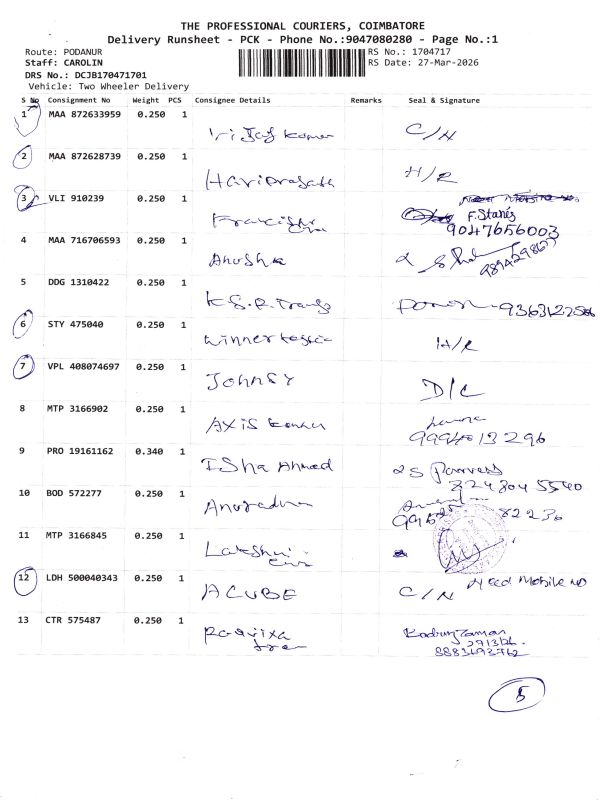 THE PROFESSIONAL COURIERS, COIMBATORE
Delivery Runsheet - PCK - Phone No.:9047080280 - Page No.:1
Route: PODANUR
RS No.: 1704717
Staff: CAROLIN
RS Date: 27-Mar-2026
DRS No.: DCJB170471701
Vehicle: Two Wheeler Delivery
S No Consignment No Weight PCS Consignee Details Remarks Seal & Signature
1 MAA 872633959 0.250 1 C/H
2 MAA 872628739 0.250 1 Hariprasath H/R
3 VLI 910239 0.250 1 F.Stanis
9047656003
4 MAA 716706593 0.250 1 Anusha
5 DDG 1310422 0.250 1 K.S.R. Trans
6 STY 475040 0.250 1 Winner H/R
7 VPL 408074697 0.250 1 JOHNSY D/C
8 MTP 3166902 0.250 1 AXIS
9994013296
9 PRO 19161162 0.340 1 ISha Ahmed
10 BOD 572277 0.250 1 Anuradha
82236
11 MTP 3166845 0.250 1 Lakshmi
12 LDH 500040343 0.250 1 ACUBE C/N Need Mobile NO
13 CTR 575487 0.250 1
5